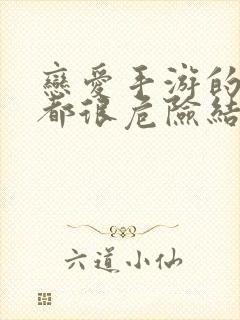 戀愛手游的
都很危險結
六道小仙